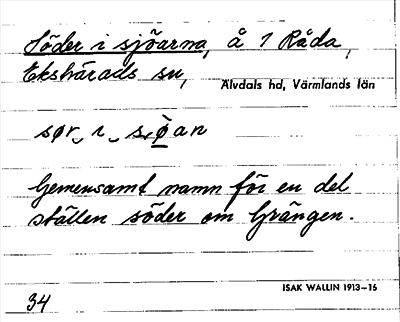 Söder i sjöarna, å 1 Råda,
Ekshärads sn,
Älvdals hd, Värmlands län
sør ͜ ɩ ͜ s,ø̀an
Gemensamt namn för en del
ställen söder om Grängen.
ISAK WALLIN 1913–16
34